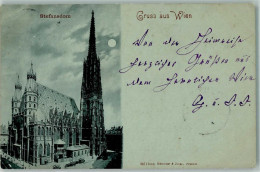 Stefansdom
Gruss aus Wien
Von der Heimreise
herzliches Grüßen aus
dem herrlichen Wien